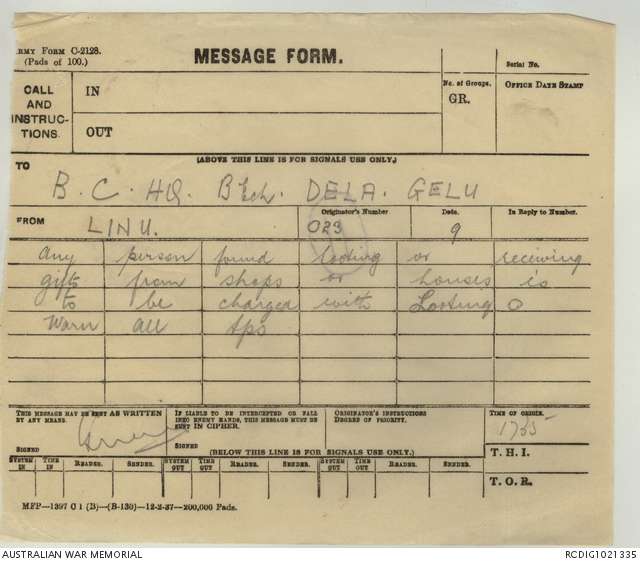 ARMY FORM C-2128.
(Pads of 100.)
MESSAGE FORM.
Serial No.
CALL
AND
INSTRUC-
TIONS.
IN
OUT
No. of Groups.
GR.
OFFICE DATE STAMP
(ABOVE THIS LINE IS FOR SIGNALS USE ONLY.)
TO
B. C. HQ. DELA. GELU
FROM
LINU.
Originator's Number
023
Date.
9
In Reply to Number.
Any person found looting or receiving
gifts from shops or houses is
to be charged with Looting O
Warn all tps
THIS MESSAGE MAY BE SENT AS WRITTEN
BY ANY MEANS.
SIGNED
IF LIABLE TO BE INTERCEPTED OR FALL
INTO ENEMY HANDS, THIS MESSAGE MUST BE
SENT IN CIPHER.
SIGNED
ORIGINATOR'S INSTRUCTIONS
DEGREE OF PRIORITY.
TIME OF ORIGIN.
1735
(BELOW THIS LINE IS FOR SIGNALS USE ONLY.)
T. H. I.
SYSTEM IN TIME IN READER. SENDER. SYSTEM OUT TIME OUT READER. SENDER. SYSTEM OUT TIME OUT READER. SENDER.
T. O. R.
MFP—1397 C 1 (B)—(B-130)—12-2-37—200,000 Pads.
AUSTRALIAN WAR MEMORIAL
RCDIG1021335